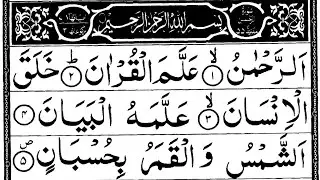 بِسْمِ اللّٰهِ الرَّحْمٰنِ الرَّحِيْمِ
اَلرَّحْمٰنُ ۙ﴿۱﴾ عَلَّمَ الْقُرْاٰنَ ؕ﴿۲﴾ خَلَقَ
الْاِنْسَانَ ۙ﴿۳﴾ عَلَّمَهُ الْبَيَانَ ﴿۴﴾
اَلشَّمْسُ وَ الْقَمَرُ بِحُسْبَانٍ ۪﴿۵﴾